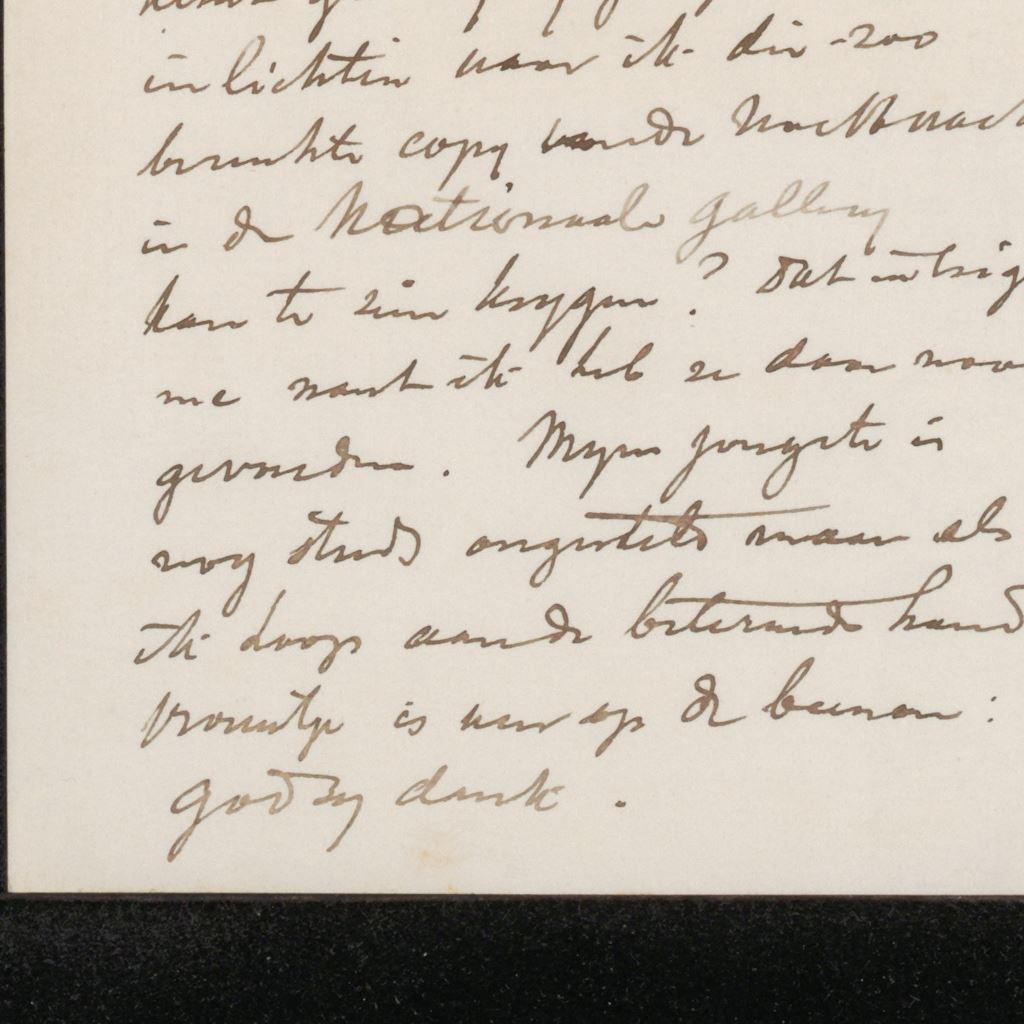 inlichten waar ik die zoo
beruchte copy van de Nachtwach
in de Nationaale gallery
kan te zien krygen? Dat intrig
me want ik heb ze daar nooi
gevonden. Myn jongste is
nog steeds ongesteld maar als
ik hoop aan de beterende hand
vrouwtje is weer op de beenen:
God zy dank.